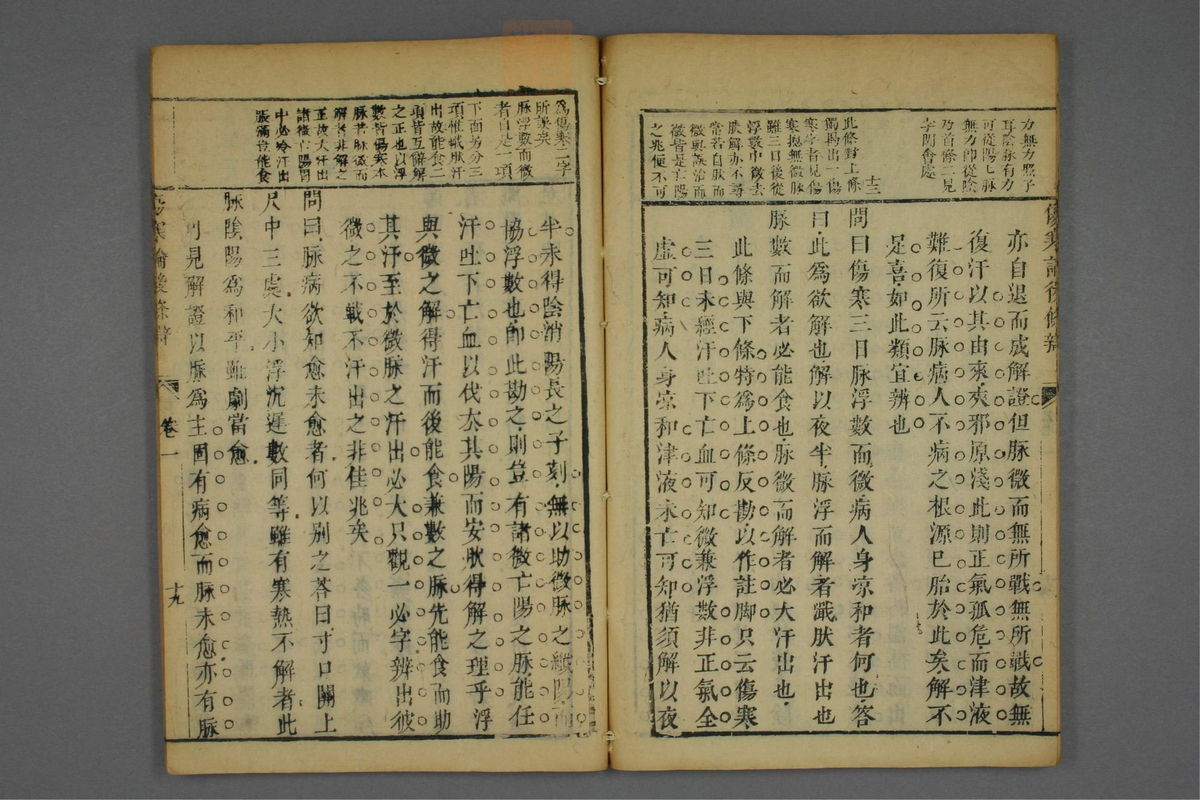 傷寒論後條辨
力無力照子
耳陰脉有力
可從陽七脉
無力仰從陰
乃首條二見
字關會處
十三
此條對上條
獨揭出一傷
寒字者見傷
寒總無微脉
雖三日後從
浮數中微去
欲解亦不尋
常若自脉而
微與誤治而
微皆是亡陽
之兆便不可
亦自退而成解證但脉微而無所戰無所戰故無
復汗以其由來來邪原淺此則正氣孤危而津液
難復所云脉病人不病之根源已胎於此矣解不
足喜如此類宜辨也
問曰傷寒三日脉浮數而微病人身凉和者何也荅
曰此爲欲解也解以夜半脉浮而解者濈然汗出也
脉數而解者必能食也脉微而解者必大汗出也
此條與下條特爲上條反勘以作註脚只云傷寒
三日未經汗吐下亡血可知微兼浮數非正氣全
虛可知病人身凉和津液未亡可知猶須解以夜
爲傷寒二字
所誤矣
脉浮數而微
者自是一項
下面另分三
項惟濈然汗
出故能食二
項皆互解解
之正也以浮
數皆傷寒本
脉若脉微而
解者非解之
正故大汗出
諸微亡陽胃
中必冷汗出
脹滿豈能食
半未得陰消陽長之子刻無以助微脉之纖陽而
協浮數也卽此勘之則豈有諸微亡陽之脉能任
汗吐下亡血以伐太其陽而安歇得解之理乎浮
與微之解得汗而後能食兼數之脉先能食而助
其汗至於微脉之汗出必大只觀一必字辨出彼
微之不戰不汗出之非佳兆矣
問曰脉病欲知愈未愈者何以别之荅曰寸口關上
尺中三處大小浮沉遲數同等雖有寒熱不解者此
脉陰陽爲和平雖劇當愈
見解證以脉爲主固有病愈而脉未愈亦有脉
傷寒論後條辨
卷一
十九